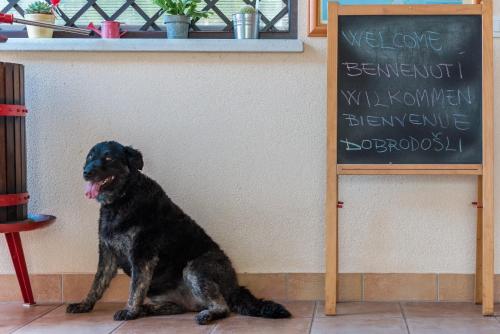 WELCOME
BENVENUTI
WILKOMMEN
BIENVENUE
DOBRODOŠLI